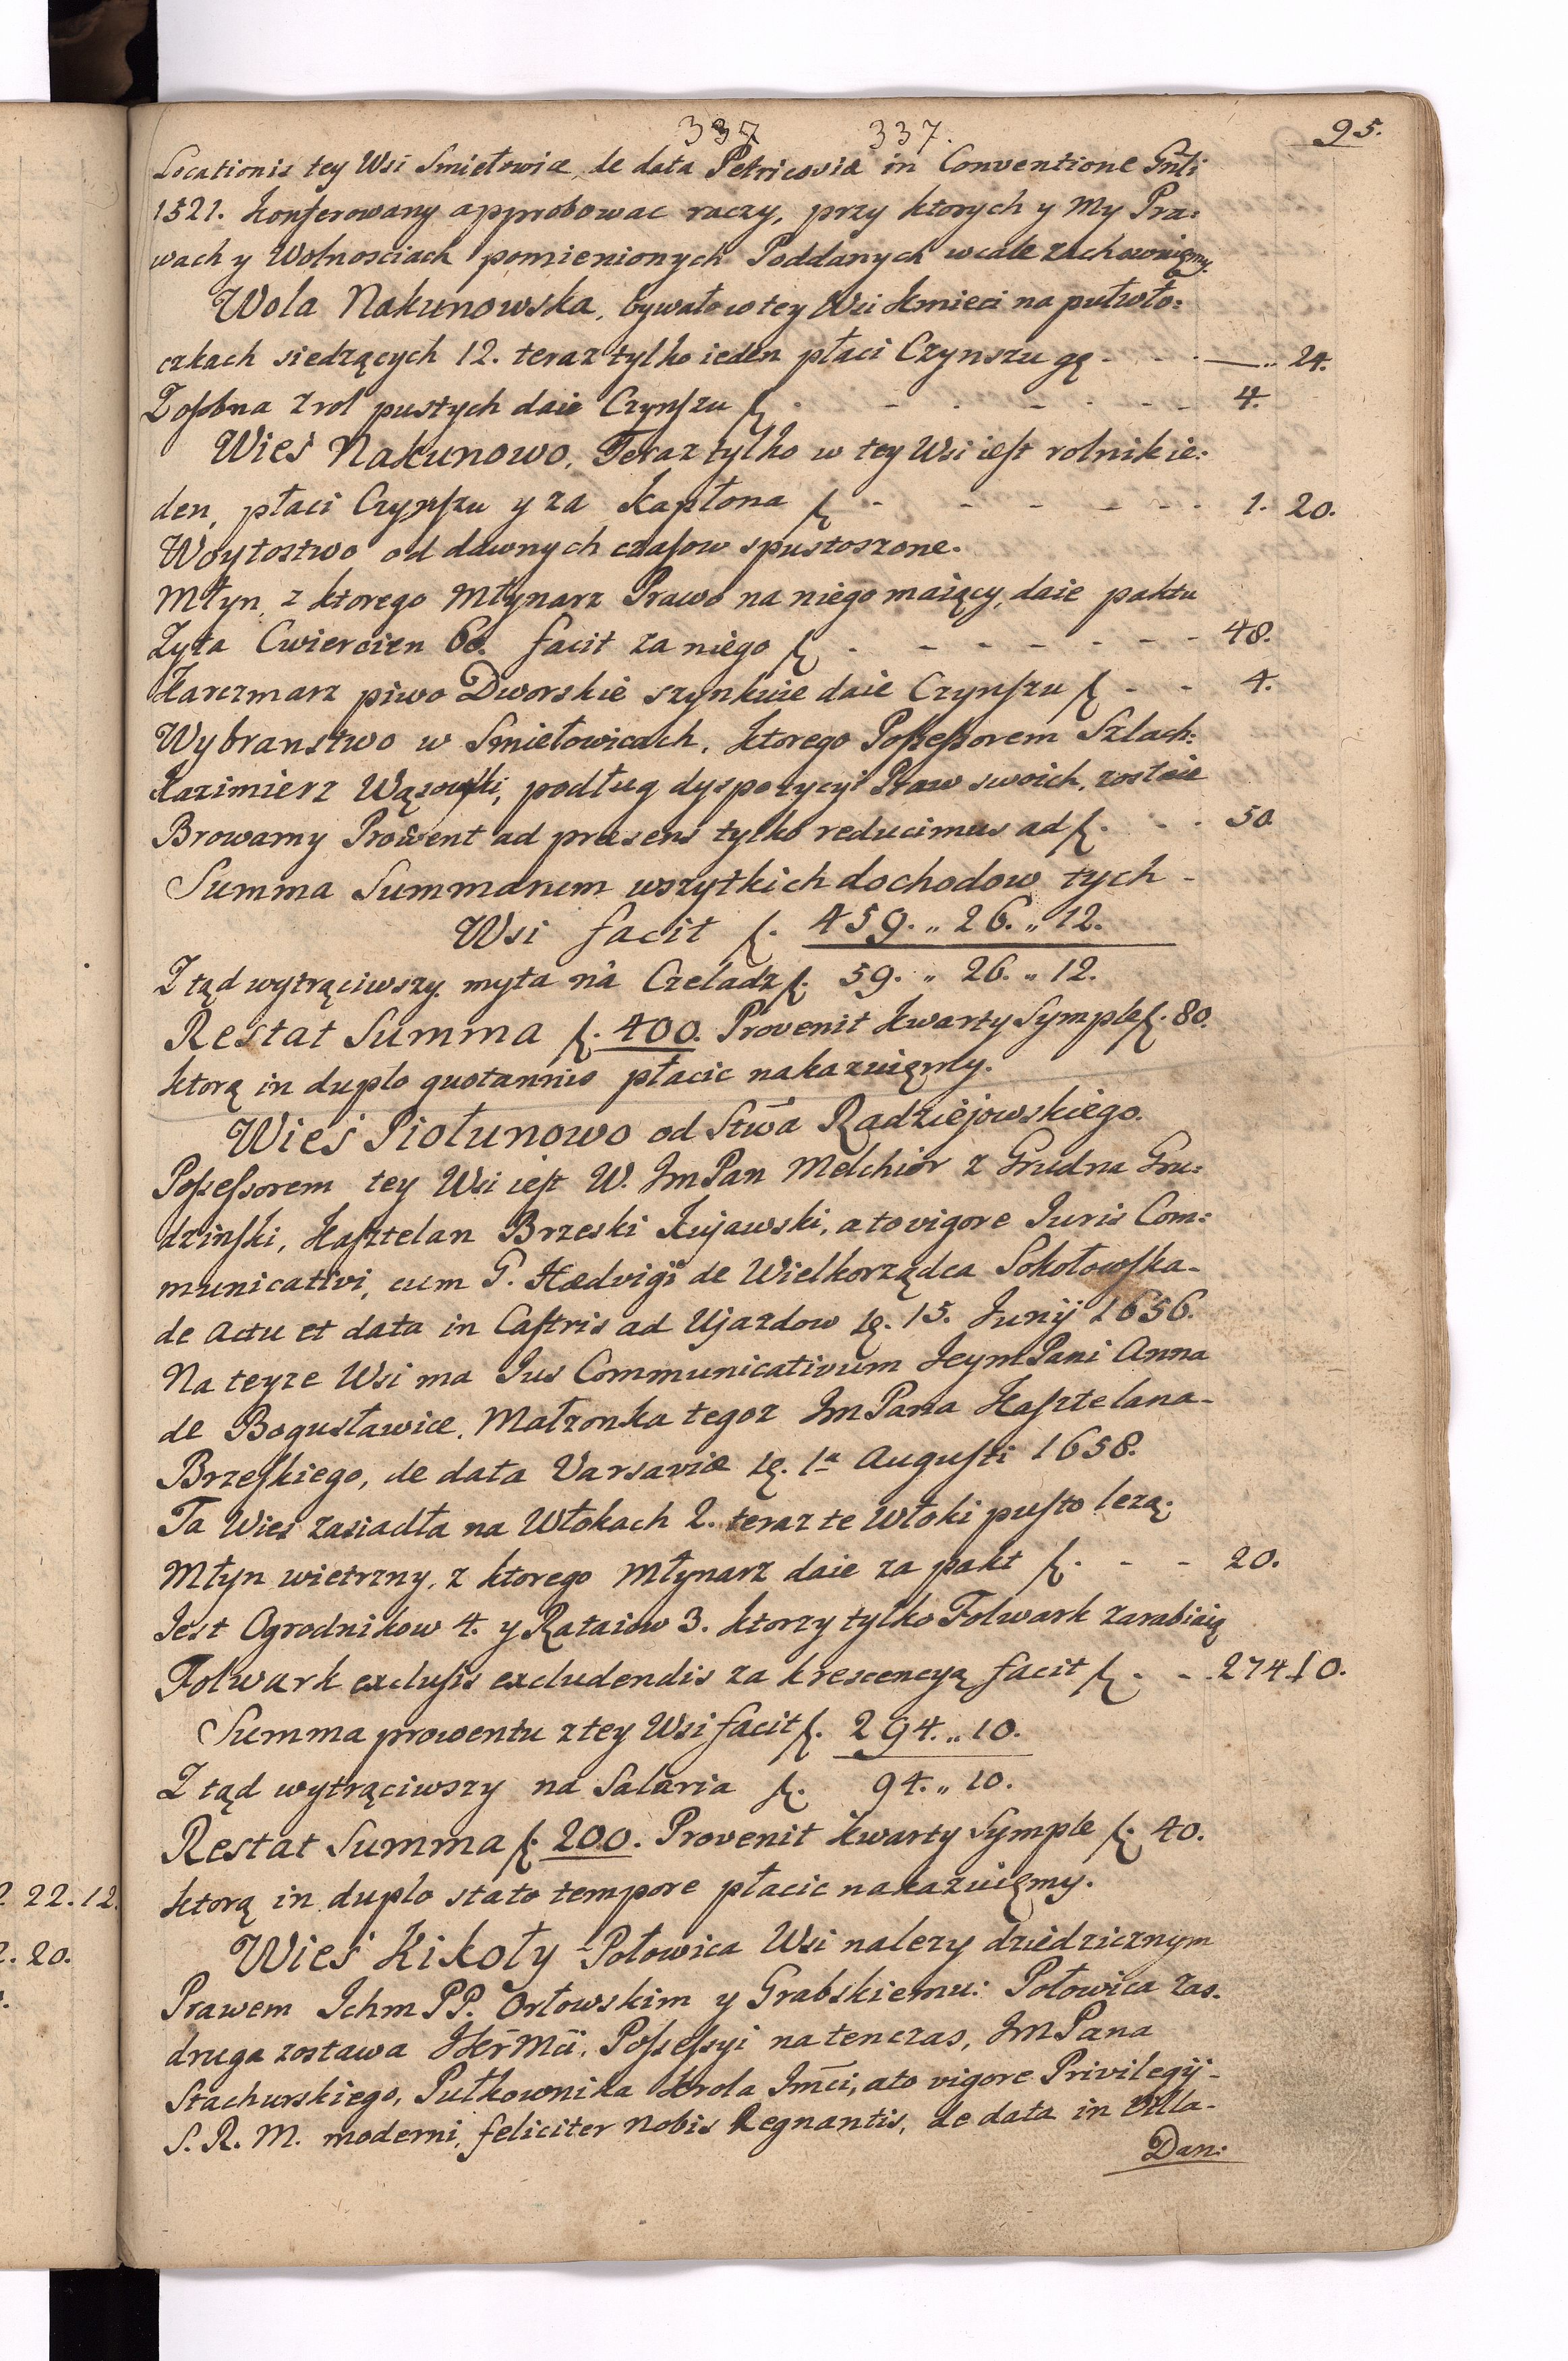 337 337. 95.
Locationis tey Wsi Smiełowicæ, de data Petricoviæ in Conventione Gn̄li
1521. konferowany approbowac raczy, przy ktorych y My Pra:
wach y Wolnosciach pomienionych Poddanych wcale zachowuięmy.
Wola Nakunowska, bywało w tey Wsi Kmieci na pułwło:
czkach siedzących 12. teraz tylko ieden płaci Czynszu gę - - - —.. 24.
Zosobna z rol pustych daie Czynszu f. - - - - - - 4.
Wieś Nakunowo. Teraz tylko w tey Wsi iest rolnik ie:
den, płaci Czynszu y za Kapłona f. - - - - - - 1. 20.
Woytostwo od dawnych czasow spustoszone.
Młyn, z ktorego Młynarz Prawo na niego maiący, daie paktu
Zyta Cwiercien 60. facit za niego f. - - - - - - - 48.
Karczmarz piwo Dworskie szynkuie daie Czynszu f. - - 4.
Wybranstwo w Smiełowicach, ktorego Possessorem Szlach:
Kazimierz Wązowski, podług dyspozycyi Praw swoich, zostaie
Browarny Prowent ad præsens tylko reducimus ad f. - - 50
Summa Summarum wszytkich dochodow tych -
Wsi facit f. 459. „ 26. „ 12.
Z tąd wytrąciwszy myta na Czeladz f. 59. „ 26. „ 12.
Restat Summa f. 400. Provenit Kwarty Symple f. 80.
ktorą in duplo quotannis płacic nakazuięmy.
Wieś Piołunowo od Stw̄a Radziejowskiego.
Possessorem tey Wsi iest W. Jm Pan Melchior z Grudna Gru:
dzinski, Kasztelan Brzeski Kujawski, a to vigore Juris Com:
municativi, cum G. Hædvigi de Wielkorządca Sokołowska -
de actu et data in Castris ad Ujazdow 15. Junij 1656.
Na teyze Wsi ma Jus Communicativum Jeym Pani Anna
de Bogusławice, Małzonka tegoz Jm Pana Kasztelana -
Brzeskiego, de data Varsaviæ 1ª Augusti 1658.
Ta Wieś zasiadła na Włokach 2. teraz te Włoki pusto lezą.
Młyn wietrzny, z ktorego Młynarz daie za pakt f. - - 20.
Jest Ogrodnikow 4. y Rataiow 3. ktorzy tylko Folwark zarabiaią
Folwark exclusis excludendis za krescencyą facit f. - - 274. 10.
Summa prowentu z tey Wsi facit f. 294. „ 10.
Z tąd wytrąciwszy na Salaria f. 94. „ 10.
Restat Summa f. 200. Provenit Kwarty Symple f. 40.
22. 12. ktorą in duplo stato tempore płacic nakazuięmy.
20. Wieś Kikoły - Połowica Wsi nalezy dziedzicznym
Prawem Ichm PP. Orłowskim y Grabskiemu: Połowica zas.
druga zostawa JKr̄ Mći, Possessyi na ten czas, Jm Pana
Stachurskiego, Pułkownika Krola Jm̄ci, a to vigore Privilegij -
S. R. M. moderni, feliciter nobis Regnantis, de data in Villa -
Dan: